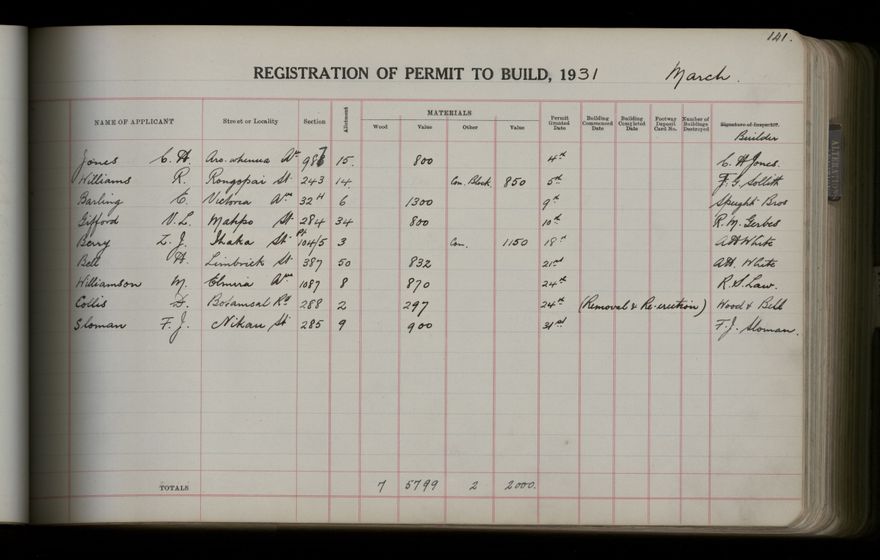 141.
REGISTRATION OF PERMIT TO BUILD, 1931 March.
NAME OF APPLICANT Street or Locality Section Allotment MATERIALS Wood Value Other Value Permit Granted Date Building Commenced Date Building Completed Date Footway Deposit Card No. Number of Buildings Destroyed Signature of Inspector. Builder
Jones C. H. Aro-whenua Av. 987 15. 800 4th C. H. Jones.
Williams R. Rongopai St. 243 14 Con. Block. 850 5th F. G.
Barling C. Victoria Ave 32H 6 1300 9th Speight Bros
Gifford V. L. St. 284 34 800 10th R. M.
Berry L. J. Ihaka St. Pt 104/5 3 Con. 1150 18th A H White
Bell H. Limbrick St. 387 50 832 21st AH. White
Williamson M. Elmira Ave 1087 8 870 24th R. S. Law.
Collis Botanical Rd. 288 2 297 24th (Removal & Re-erection) Wood & Bell
Sloman F. J. Nikau St 285 9 900 31st F. J. Sloman.
TOTALS 7 5799 2 2000.